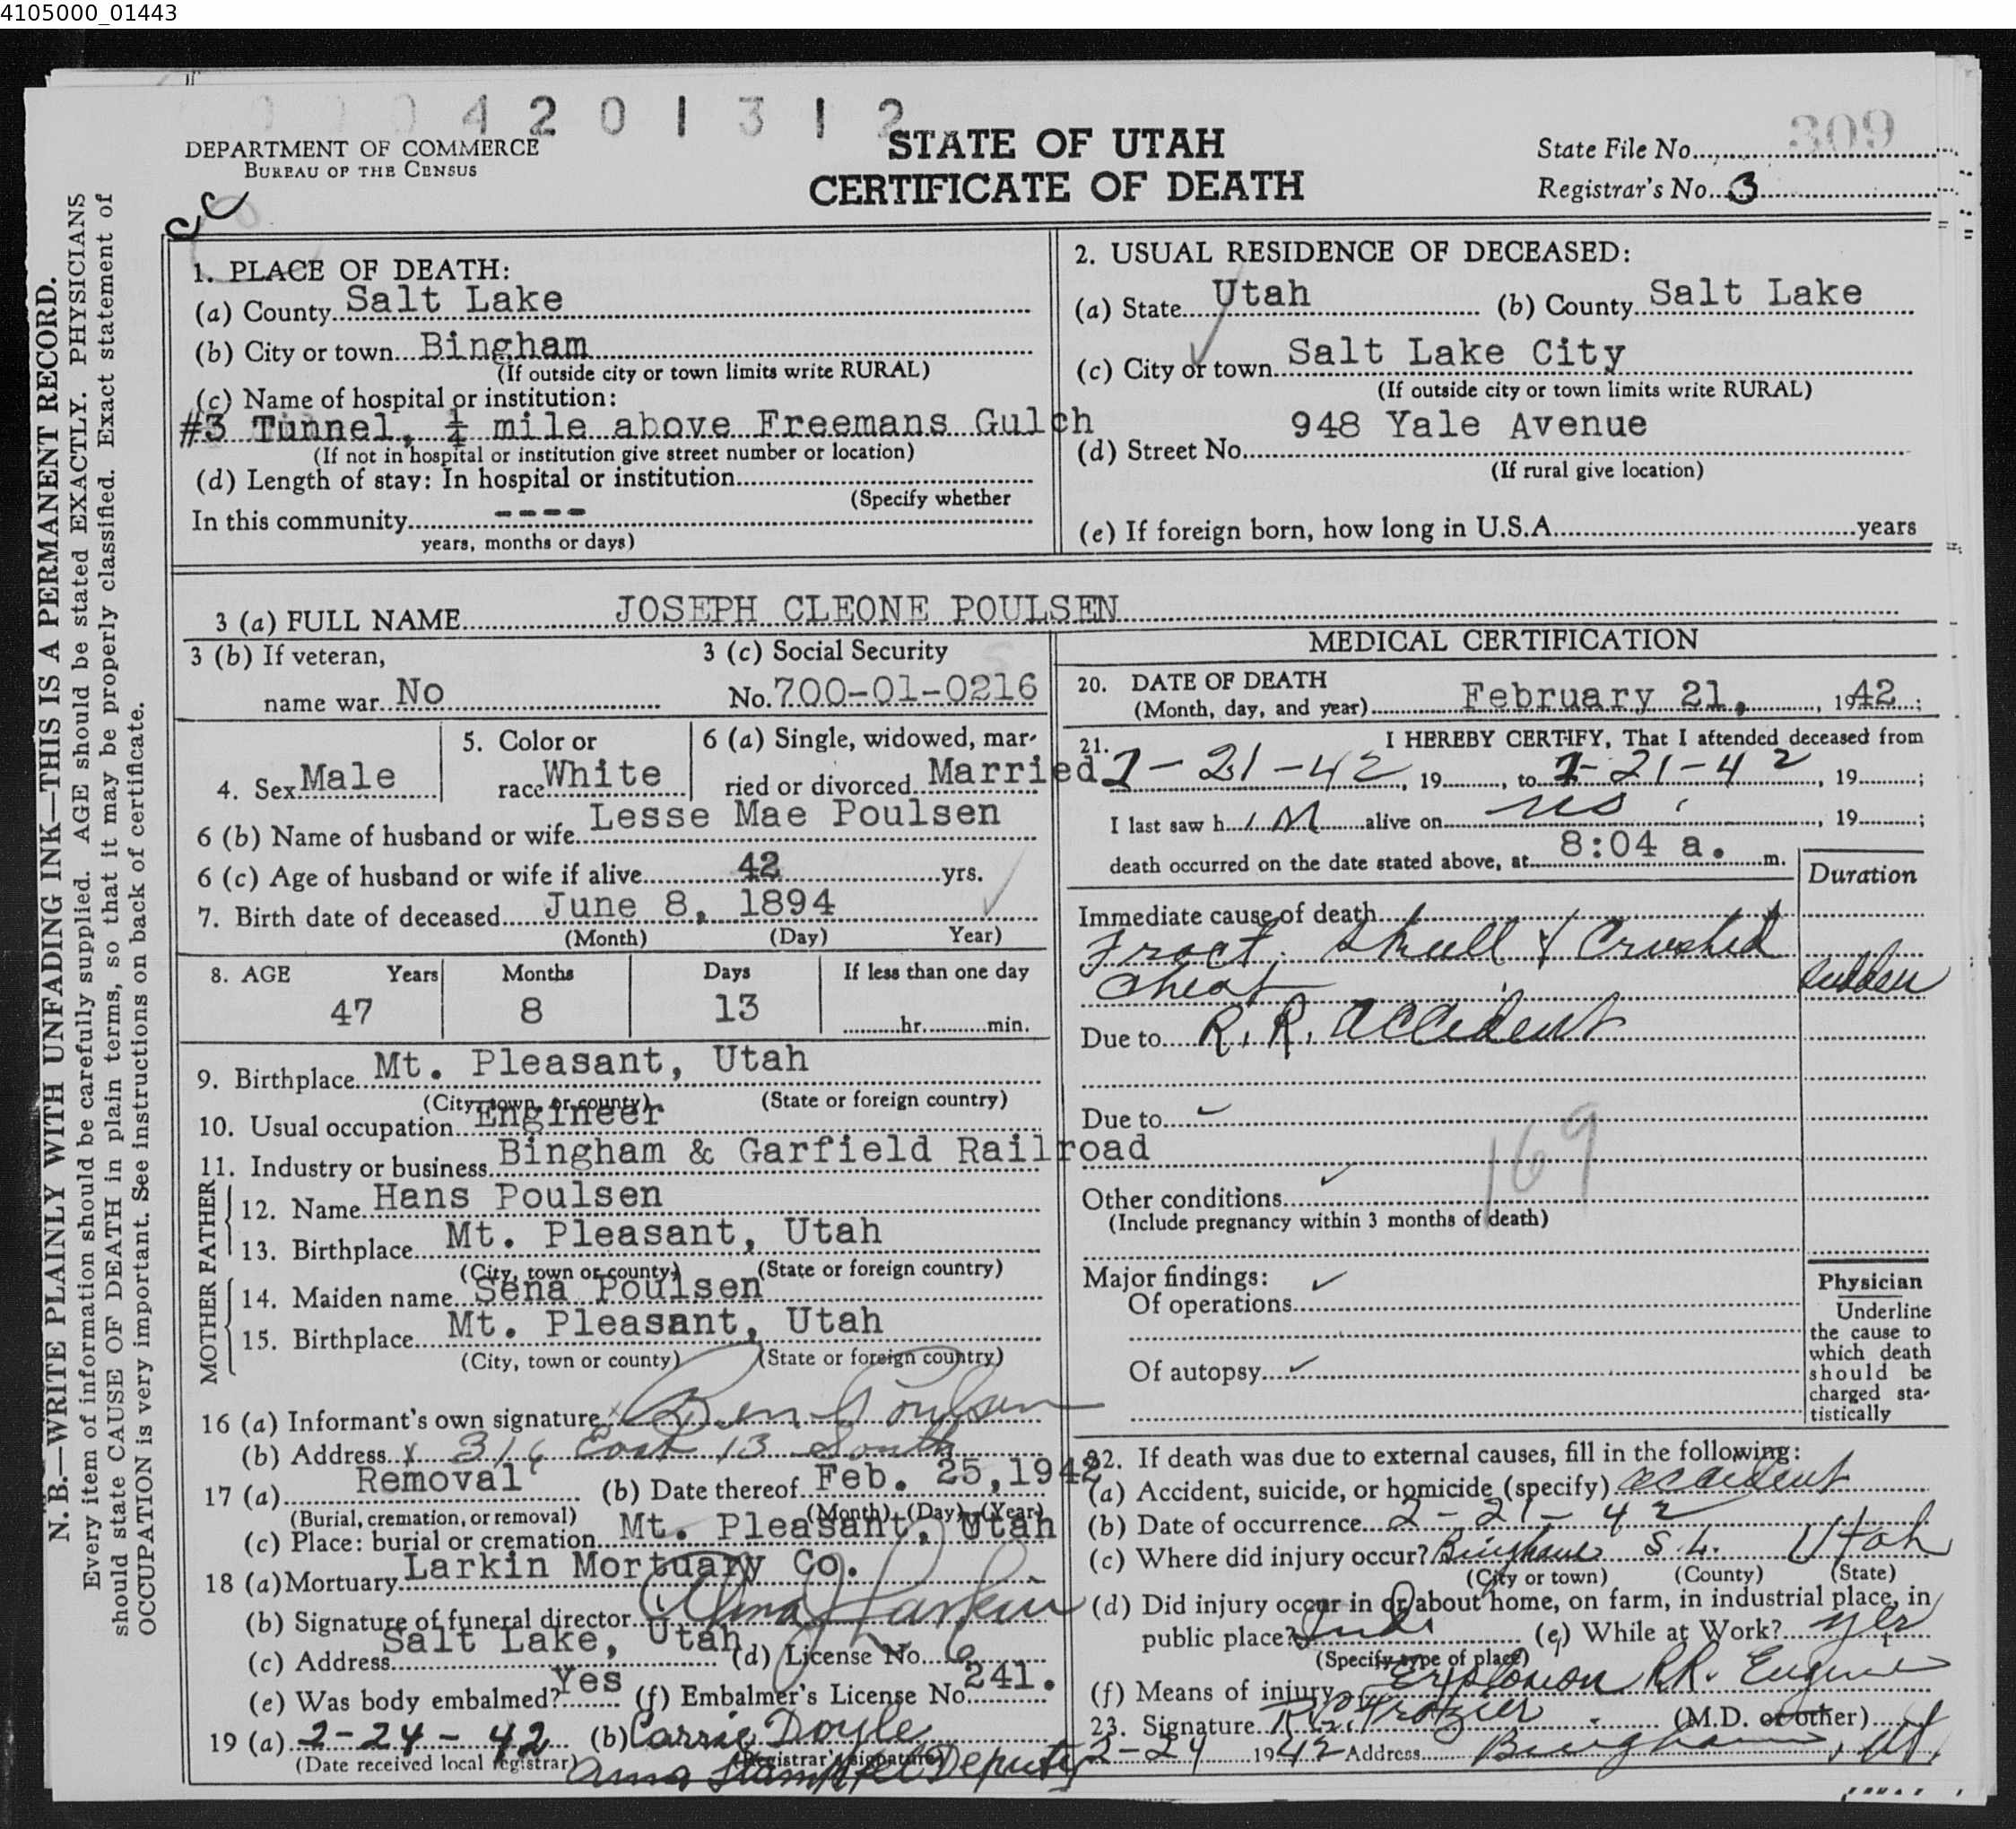 4105000_01443
4 2 0 1 3 1 2
DEPARTMENT OF COMMERCE
BUREAU OF THE CENSUS
STATE OF UTAH
CERTIFICATE OF DEATH
State File No. 309
Registrar's No. 3
N. B.—WRITE PLAINLY WITH UNFADING INK—THIS IS A PERMANENT RECORD.
Every item of information should be carefully supplied. AGE should be stated EXACTLY. PHYSICIANS
should state CAUSE OF DEATH in plain terms, so that it may be properly classified. Exact statement of
OCCUPATION is very important. See instructions on back of certificate.
1. PLACE OF DEATH:
(a) County Salt Lake
(b) City or town Bingham
(If outside city or town limits write RURAL)
(c) Name of hospital or institution:
#3 Tunnel, ¼ mile above Freemans Gulch
(If not in hospital or institution give street number or location)
(d) Length of stay: In hospital or institution
(Specify whether
In this community ----
years, months or days)
2. USUAL RESIDENCE OF DECEASED:
(a) State Utah (b) County Salt Lake
(c) City or town Salt Lake City
(If outside city or town limits write RURAL)
948 Yale Avenue
(d) Street No.
(If rural give location)
(e) If foreign born, how long in U.S.A. years
3 (a) FULL NAME JOSEPH CLEONE POULSEN
3 (b) If veteran,
name war No
3 (c) Social Security
No. 700-01-0216
4. Sex Male
5. Color or
race White
6 (a) Single, widowed, mar-
ried or divorced Married
6 (b) Name of husband or wife Lesse Mae Poulsen
6 (c) Age of husband or wife if alive 42 yrs.
7. Birth date of deceased June 8, 1894
(Month) (Day) Year)
8. AGE Years Months Days If less than one day
47 8 13 hr. min.
9. Birthplace Mt. Pleasant, Utah
(City, town, or county) (State or foreign country)
10. Usual occupation Engineer
11. Industry or business Bingham & Garfield Railroad
FATHER
12. Name Hans Poulsen
13. Birthplace Mt. Pleasant, Utah
(City, town or county) (State or foreign country)
MOTHER
14. Maiden name Sena Poulsen
15. Birthplace Mt. Pleasant, Utah
(City, town or county) (State or foreign country)
16 (a) Informant's own signature x Ben Poulsen
(b) Address x 316 East 13 South
17 (a) Removal (b) Date thereof Feb. 25, 1942
(Burial, cremation, or removal) (Month) (Day) (Year)
(c) Place: burial or cremation Mt. Pleasant, Utah
18 (a) Mortuary Larkin Mortuary Co.
(b) Signature of funeral director Alma Larkin
(c) Address Salt Lake, Utah (d) License No. 6
(e) Was body embalmed? Yes (f) Embalmer's License No. 241.
19 (a) 2-24-42 (b) Carrie Doyle
(Date received local registrar) (Registrar's signature)
Deputy
MEDICAL CERTIFICATION
20. DATE OF DEATH
(Month, day, and year) February 21, 1942;
21. I HEREBY CERTIFY, That I attended deceased from
2-21-42, 19 , to 2-21-42, 19 ;
I last saw h im alive on no, 19 ;
death occurred on the date stated above, at 8:04 a. m.
Duration
Immediate cause of death
Fract. Skull & Crushed
Chest sudden
Due to R. R. accident
Due to
169
Other conditions
(Include pregnancy within 3 months of death)
Major findings:
Of operations
Of autopsy
Physician
Underline
the cause to
which death
should be
charged sta-
tistically
22. If death was due to external causes, fill in the following:
(a) Accident, suicide, or homicide (specify) accident
(b) Date of occurrence 2-21-42
(c) Where did injury occur? Bingham S. L. Utah
(City or town) (County) (State)
(d) Did injury occur in or about home, on farm, in industrial place, in
public place? Ind. (e) While at Work? yes
(Specify type of place)
(f) Means of injury Explosion RR. Engine
23. Signature Frazier (M.D. or other)
2-24 1942 Address Bingham, Ut.